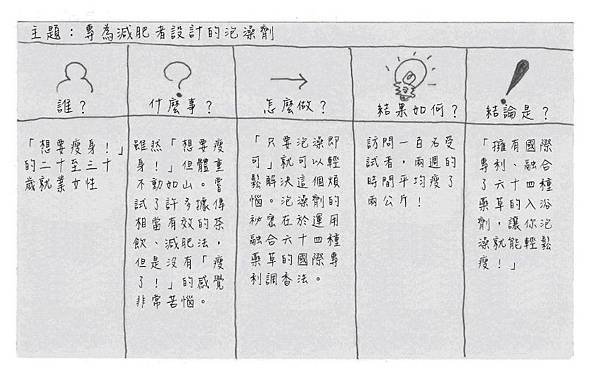 主題：專為減肥者設計的泡澡劑
誰？
什麼事？
怎麼做？
結果如何？
結論是？
「想要瘦身！」
的二十至三十
歲就業女性
雖然「想要瘦
身！」但體重
不動如山。嘗
試了許多據傳
相當有效的茶
飲、減肥法，
但是沒有「瘦
了！」的感覺
非常苦惱。
「只要泡澡即
可」就可以輕
鬆解決這個煩
惱。泡澡劑的
祕密在於運用
融合六十四種
藥草的國際專
利調香法。
訪問一百名受
試者，兩週的
時間平均瘦了
兩公斤！
「擁有國際
專利、融合
了六十四種
藥草的入浴
劑，讓你泡
澡就能輕鬆
瘦！」